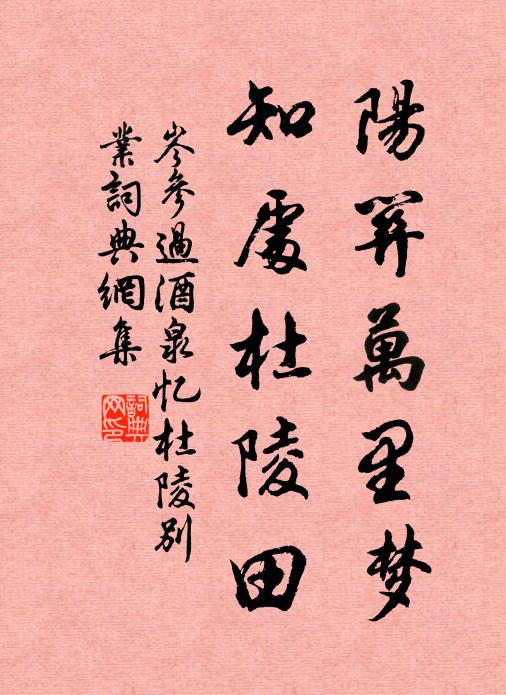 陽關萬里梦
知處杜陵田
岑參過酒泉忆杜陵別
業詞典網集
詞典网印